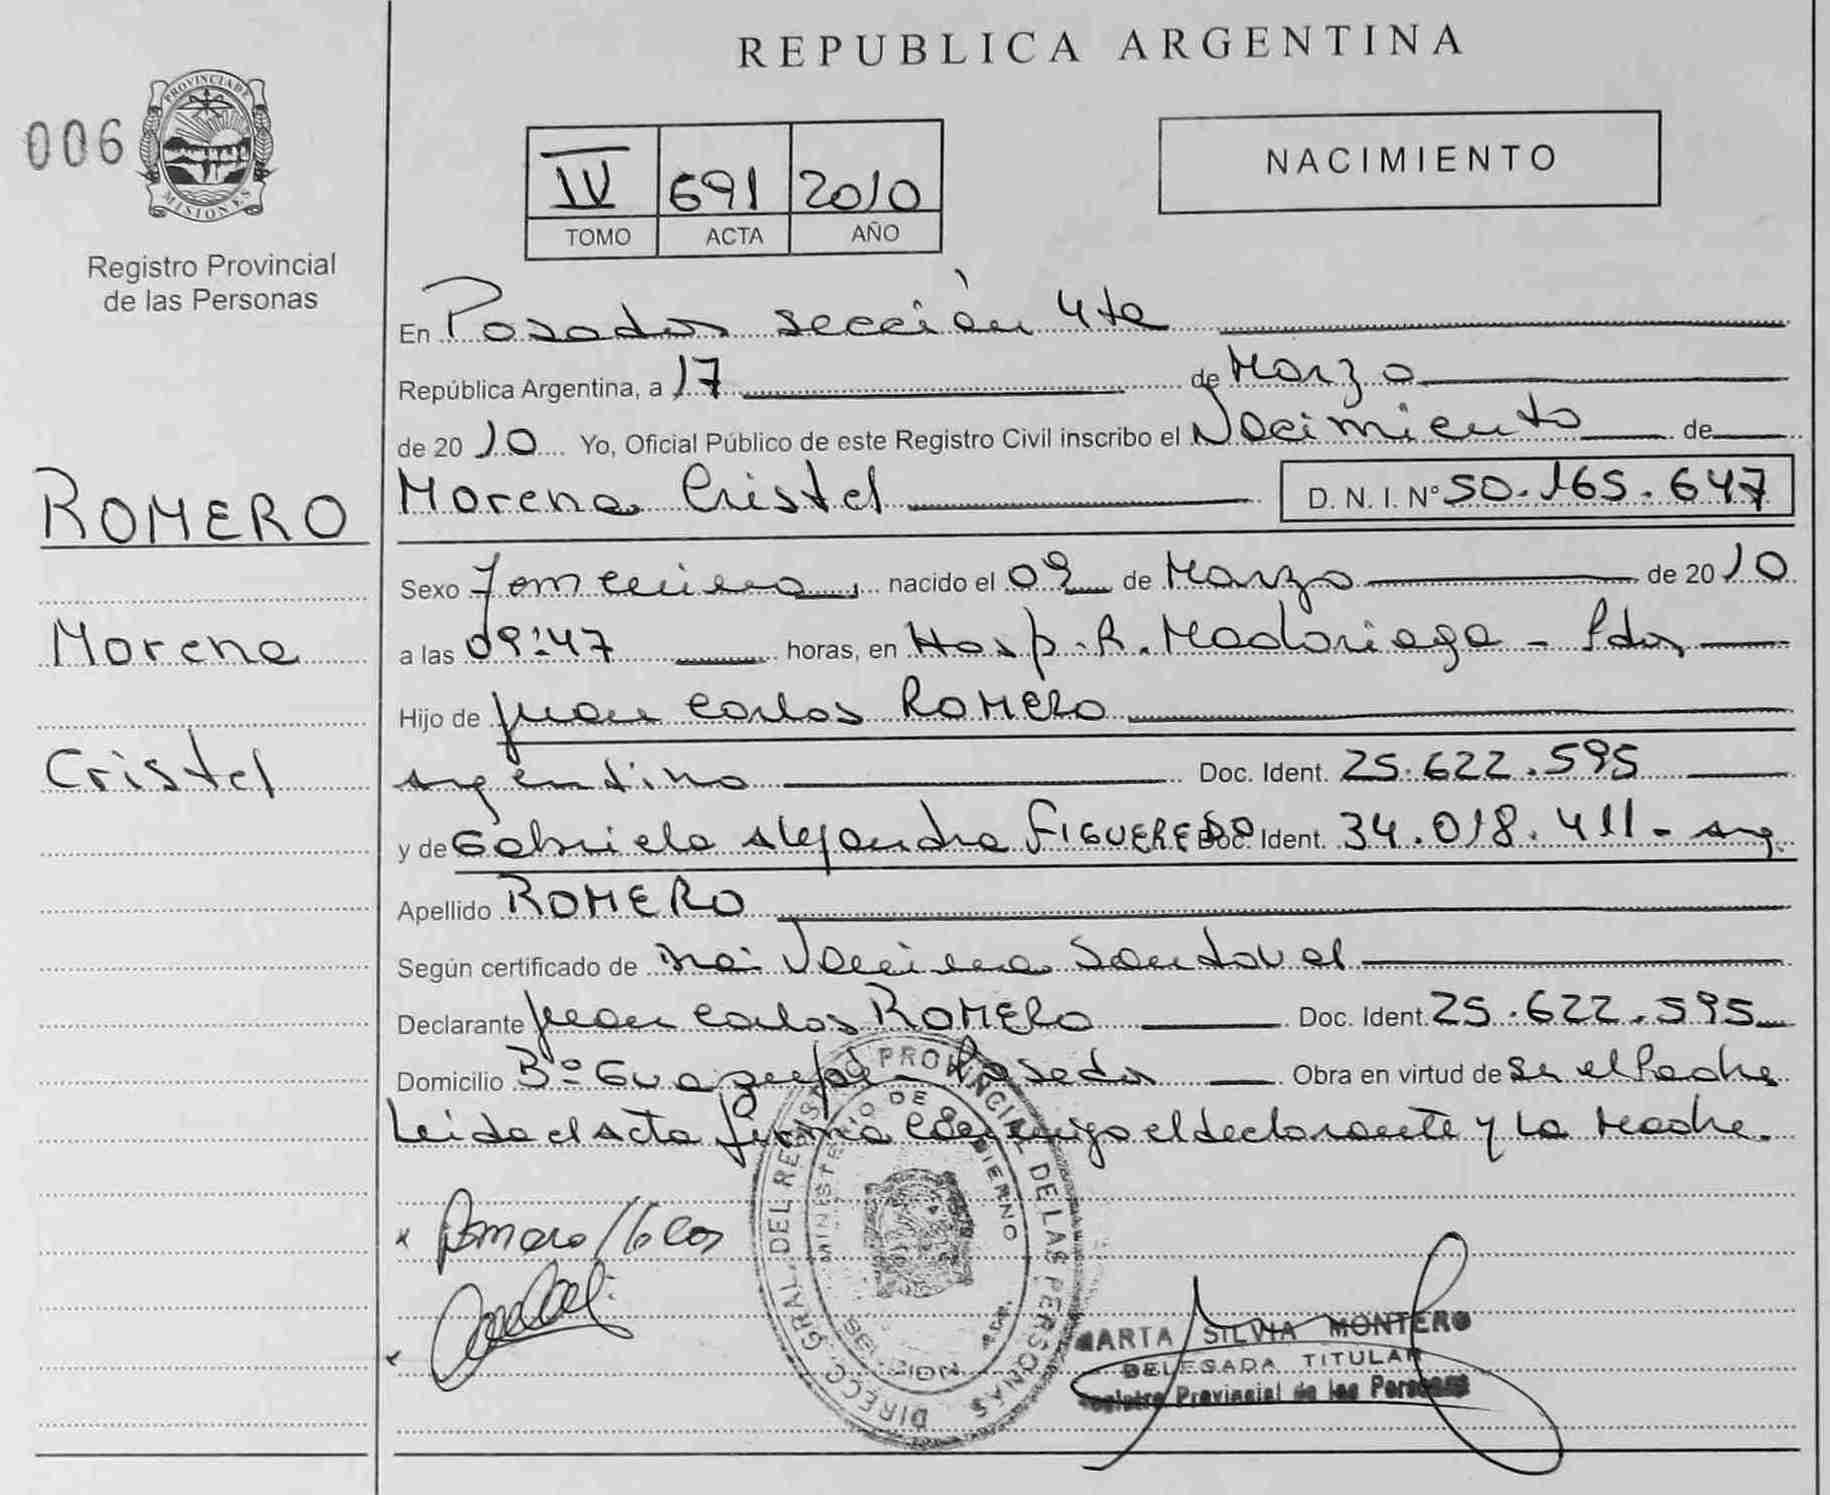 REPUBLICA ARGENTINA
006
PROVINCIA DE
MISIONES
Registro Provincial
de las Personas
IV 691 2010
TOMO ACTA AÑO
NACIMIENTO
ROMERO
Morena
Cristel
En Posadas sección 4ta
República Argentina, a 17 de Marzo
de 2010 Yo, Oficial Público de este Registro Civil inscribo el Nacimiento de
Morena Cristel D. N. I. N° 50.165.647
Sexo Femenino, nacido el 09 de Marzo de 2010
a las 09:47 horas, en Hosp. R. Madariaga - Pdas,
Hijo de Juan Carlos ROMERO
argentino Doc. Ident. 25.622.595
y de Gabriela Alejandra FIGUEREDO Doc. Ident. 34.018.411 - arg.
Apellido ROMERO
Según certificado de Sandoval
Declarante Juan Carlos ROMERO Doc. Ident. 25.622.595
Domicilio B° Posadas Obra en virtud de Ser el Padre
Leida el acta firma conmigo el declarante y La Madre.
DIRECC. GRAL. DEL REGISTRO PROVINCIAL DE LAS PERSONAS
MINISTERIO DE GOBIERNO
MARTA SILVIA MONTERO
DELEGADA TITULAR
Registro Provincial de las Personas